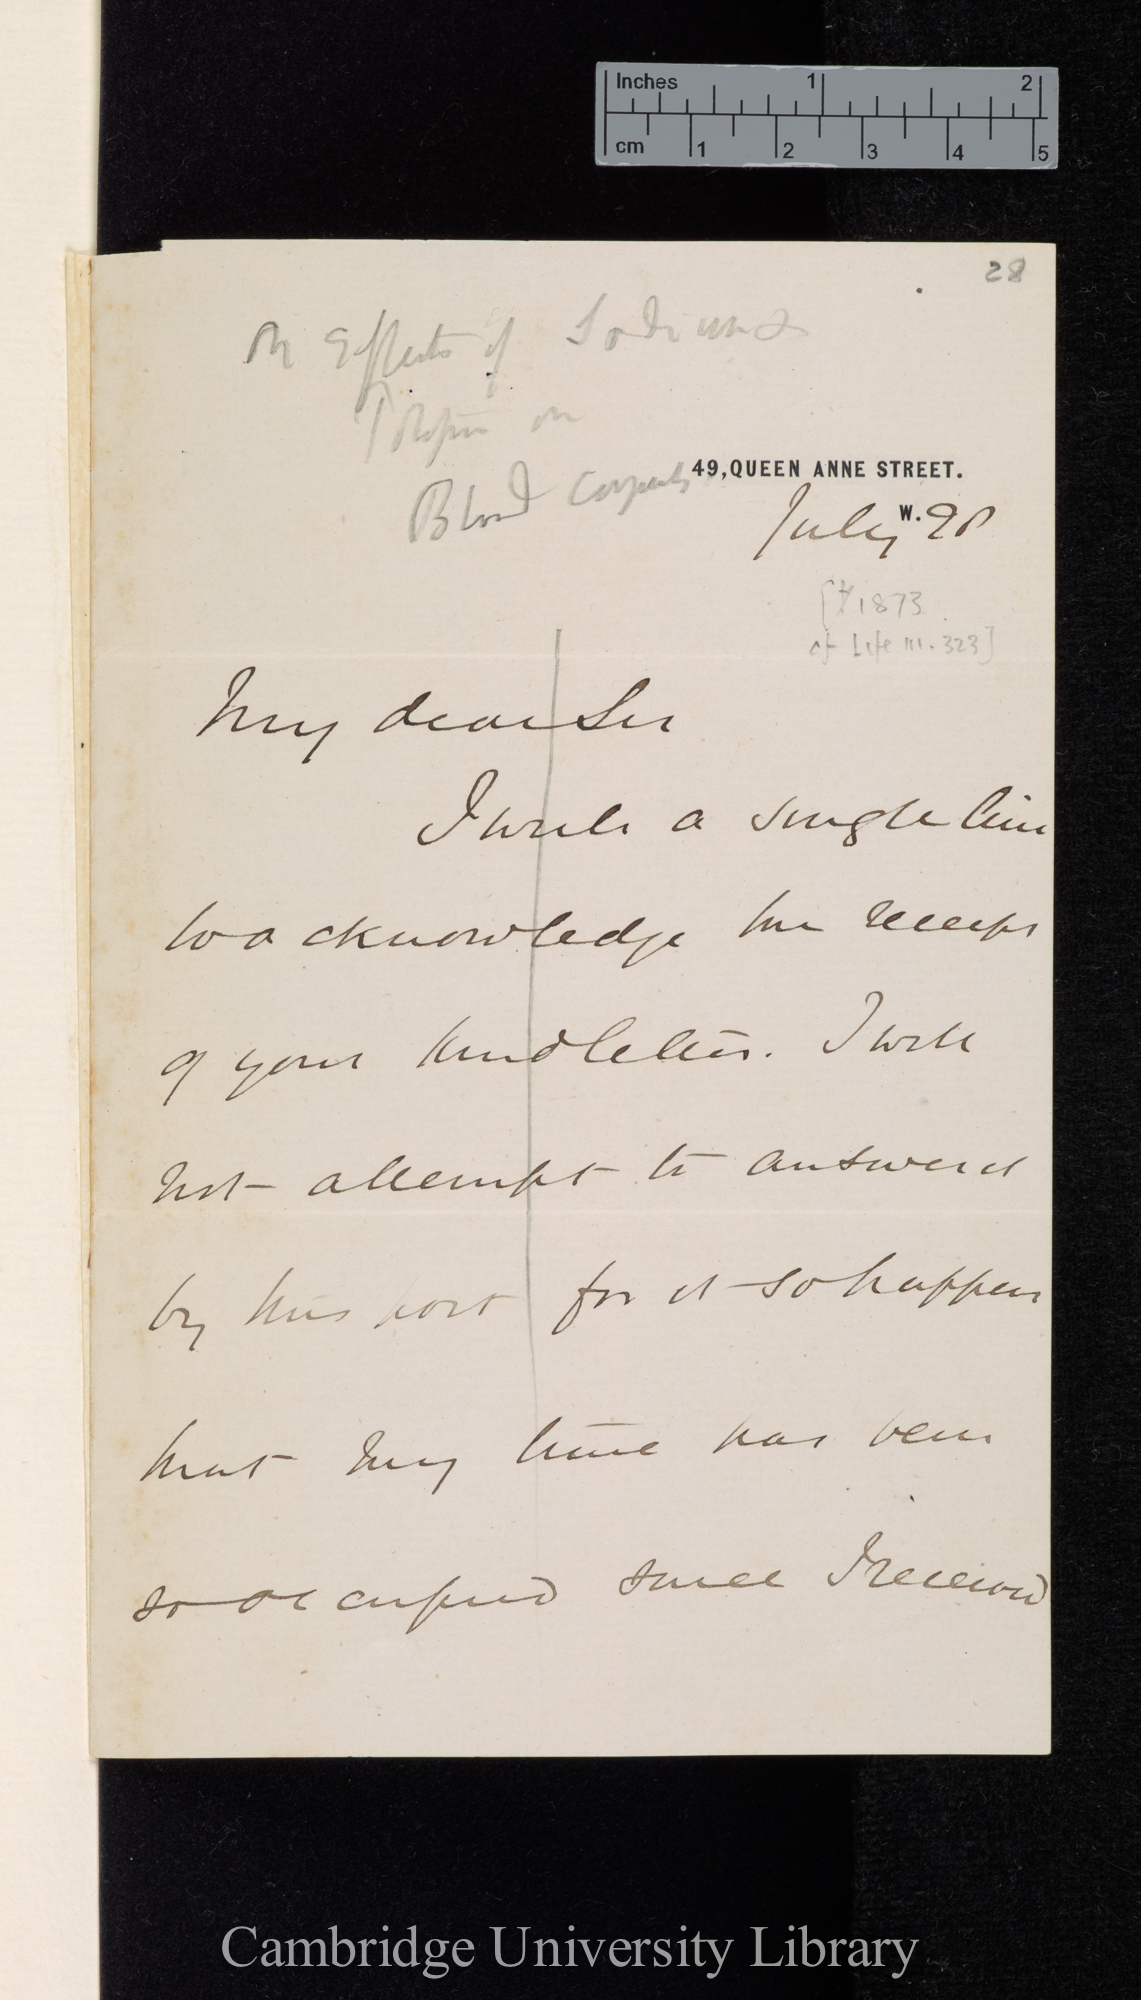 Inches 1 2
cm 1 2 3 4 5
28
On Effects of Sodium &
on
Blood Corpuscles
49, QUEEN ANNE STREET.
W.
July 28
1873
cf Life III. 323]
My dear Sir
I write a single line
to acknowledge the receipt
of your kind letter. I will
not attempt to answer it
by this post for it so happens
that my time has been
so occupied since I received
Cambridge University Library